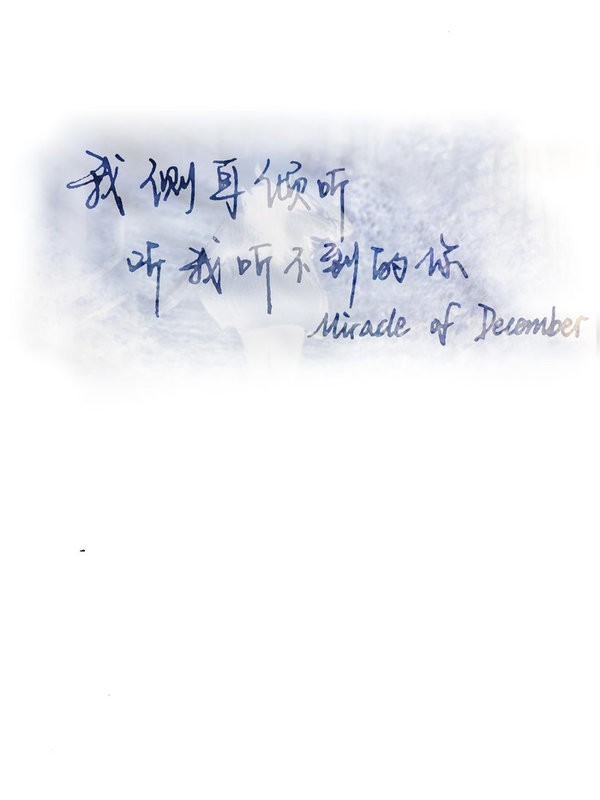 我侧耳倾听
听我听不到的你
Miracle of December